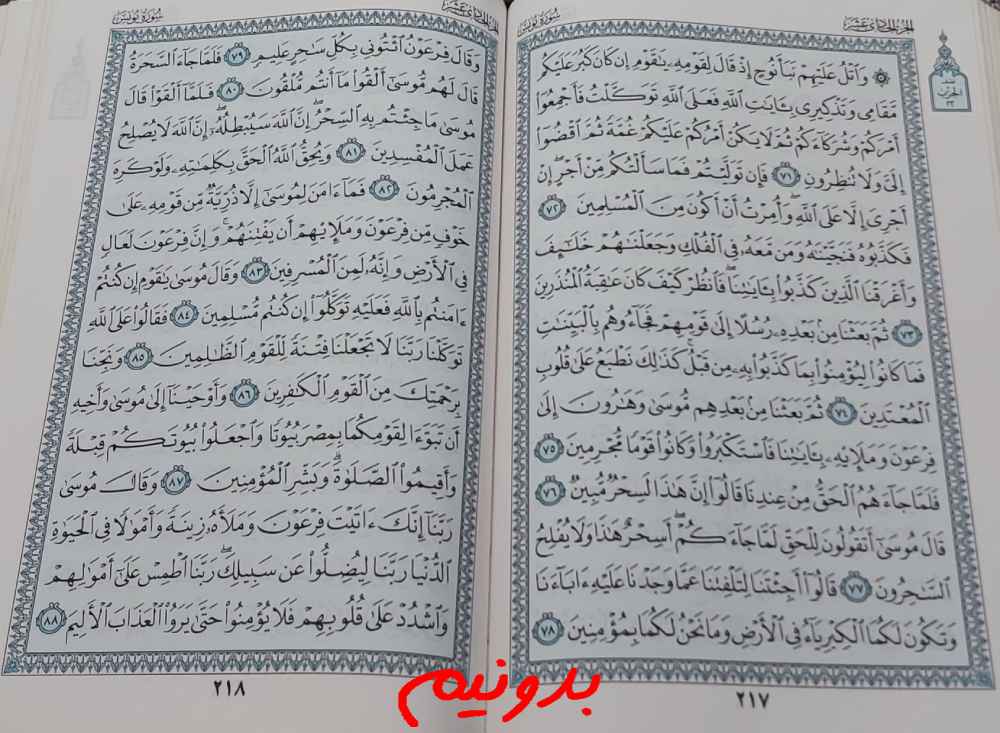 الجزء الحادي عشر
سورة يونس
۞ وَٱتْلُ عَلَيْهِمْ نَبَأَ نُوحٍ إِذْ قَالَ لِقَوْمِهِۦ يَٰقَوْمِ إِن كَانَ كَبُرَ عَلَيْكُم
مَّقَامِى وَتَذْكِيرِى بِـَٔايَٰتِ ٱللَّهِ فَعَلَى ٱللَّهِ تَوَكَّلْتُ فَأَجْمِعُوٓا۟
أَمْرَكُمْ وَشُرَكَآءَكُمْ ثُمَّ لَا يَكُنْ أَمْرُكُمْ عَلَيْكُمْ غُمَّةً ثُمَّ ٱقْضُوٓا۟
إِلَىَّ وَلَا تُنظِرُونِ ٧١ فَإِن تَوَلَّيْتُمْ فَمَا سَأَلْتُكُم مِّنْ أَجْرٍ إِنْ
أَجْرِىَ إِلَّا عَلَى ٱللَّهِ وَأُمِرْتُ أَنْ أَكُونَ مِنَ ٱلْمُسْلِمِينَ ٧٢
فَكَذَّبُوهُ فَنَجَّيْنَٰهُ وَمَن مَّعَهُۥ فِى ٱلْفُلْكِ وَجَعَلْنَٰهُمْ خَلَٰٓئِفَ
وَأَغْرَقْنَا ٱلَّذِينَ كَذَّبُوا۟ بِـَٔايَٰتِنَا فَٱنظُرْ كَيْفَ كَانَ عَٰقِبَةُ ٱلْمُنذَرِينَ
٧٣ ثُمَّ بَعَثْنَا مِنۢ بَعْدِهِۦ رُسُلًا إِلَىٰ قَوْمِهِمْ فَجَآءُوهُم بِٱلْبَيِّنَٰتِ
فَمَا كَانُوا۟ لِيُؤْمِنُوا۟ بِمَا كَذَّبُوا۟ بِهِۦ مِن قَبْلُ كَذَٰلِكَ نَطْبَعُ عَلَىٰ قُلُوبِ
ٱلْمُعْتَدِينَ ٧٤ ثُمَّ بَعَثْنَا مِنۢ بَعْدِهِم مُّوسَىٰ وَهَٰرُونَ إِلَىٰ
فِرْعَوْنَ وَمَلَإِي۟هِۦ بِـَٔايَٰتِنَا فَٱسْتَكْبَرُوا۟ وَكَانُوا۟ قَوْمًا مُّجْرِمِينَ ٧٥
فَلَمَّا جَآءَهُمُ ٱلْحَقُّ مِنْ عِندِنَا قَالُوٓا۟ إِنَّ هَٰذَا لَسِحْرٌ مُّبِينٌ ٧٦
قَالَ مُوسَىٰٓ أَتَقُولُونَ لِلْحَقِّ لَمَّا جَآءَكُمْ أَسِحْرٌ هَٰذَا وَلَا يُفْلِحُ
ٱلسَّٰحِرُونَ ٧٧ قَالُوٓا۟ أَجِئْتَنَا لِتَلْفِتَنَا عَمَّا وَجَدْنَا عَلَيْهِ ءَابَآءَنَا
وَتَكُونَ لَكُمَا ٱلْكِبْرِيَآءُ فِى ٱلْأَرْضِ وَمَا نَحْنُ لَكُمَا بِمُؤْمِنِينَ ٧٨
٢١٧
الجزء الحادي عشر
سورة يونس
وَقَالَ فِرْعَوْنُ ٱئْتُونِى بِكُلِّ سَٰحِرٍ عَلِيمٍ ٧٩ فَلَمَّا جَآءَ ٱلسَّحَرَةُ
قَالَ لَهُم مُّوسَىٰٓ أَلْقُوا۟ مَآ أَنتُم مُّلْقُونَ ٨٠ فَلَمَّآ أَلْقَوْا۟ قَالَ
مُوسَىٰ مَا جِئْتُم بِهِ ٱلسِّحْرُ إِنَّ ٱللَّهَ سَيُبْطِلُهُۥٓ إِنَّ ٱللَّهَ لَا يُصْلِحُ
عَمَلَ ٱلْمُفْسِدِينَ ٨١ وَيُحِقُّ ٱللَّهُ ٱلْحَقَّ بِكَلِمَٰتِهِۦ وَلَوْ كَرِهَ
ٱلْمُجْرِمُونَ ٨٢ فَمَآ ءَامَنَ لِمُوسَىٰٓ إِلَّا ذُرِّيَّةٌ مِّن قَوْمِهِۦ عَلَىٰ
خَوْفٍ مِّن فِرْعَوْنَ وَمَلَإِي۟هِمْ أَن يَفْتِنَهُمْ وَإِنَّ فِرْعَوْنَ لَعَالٍ
فِى ٱلْأَرْضِ وَإِنَّهُۥ لَمِنَ ٱلْمُسْرِفِينَ ٨٣ وَقَالَ مُوسَىٰ يَٰقَوْمِ إِن كُنتُمْ
ءَامَنتُم بِٱللَّهِ فَعَلَيْهِ تَوَكَّلُوٓا۟ إِن كُنتُم مُّسْلِمِينَ ٨٤ فَقَالُوا۟ عَلَى ٱللَّهِ
تَوَكَّلْنَا رَبَّنَا لَا تَجْعَلْنَا فِتْنَةً لِّلْقَوْمِ ٱلظَّٰلِمِينَ ٨٥ وَنَجِّنَا
بِرَحْمَتِكَ مِنَ ٱلْقَوْمِ ٱلْكَٰفِرِينَ ٨٦ وَأَوْحَيْنَآ إِلَىٰ مُوسَىٰ وَأَخِيهِ
أَن تَبَوَّءَا لِقَوْمِكُمَا بِمِصْرَ بُيُوتًا وَٱجْعَلُوا۟ بُيُوتَكُمْ قِبْلَةً
وَأَقِيمُوا۟ ٱلصَّلَوٰةَ وَبَشِّرِ ٱلْمُؤْمِنِينَ ٨٧ وَقَالَ مُوسَىٰ
رَبَّنَآ إِنَّكَ ءَاتَيْتَ فِرْعَوْنَ وَمَلَأَهُۥ زِينَةً وَأَمْوَٰلًا فِى ٱلْحَيَوٰةِ
ٱلدُّنْيَا رَبَّنَا لِيُضِلُّوا۟ عَن سَبِيلِكَ رَبَّنَا ٱطْمِسْ عَلَىٰٓ أَمْوَٰلِهِمْ
وَٱشْدُدْ عَلَىٰ قُلُوبِهِمْ فَلَا يُؤْمِنُوا۟ حَتَّىٰ يَرَوُا۟ ٱلْعَذَابَ ٱلْأَلِيمَ ٨٨
٢١٨
بدونيم